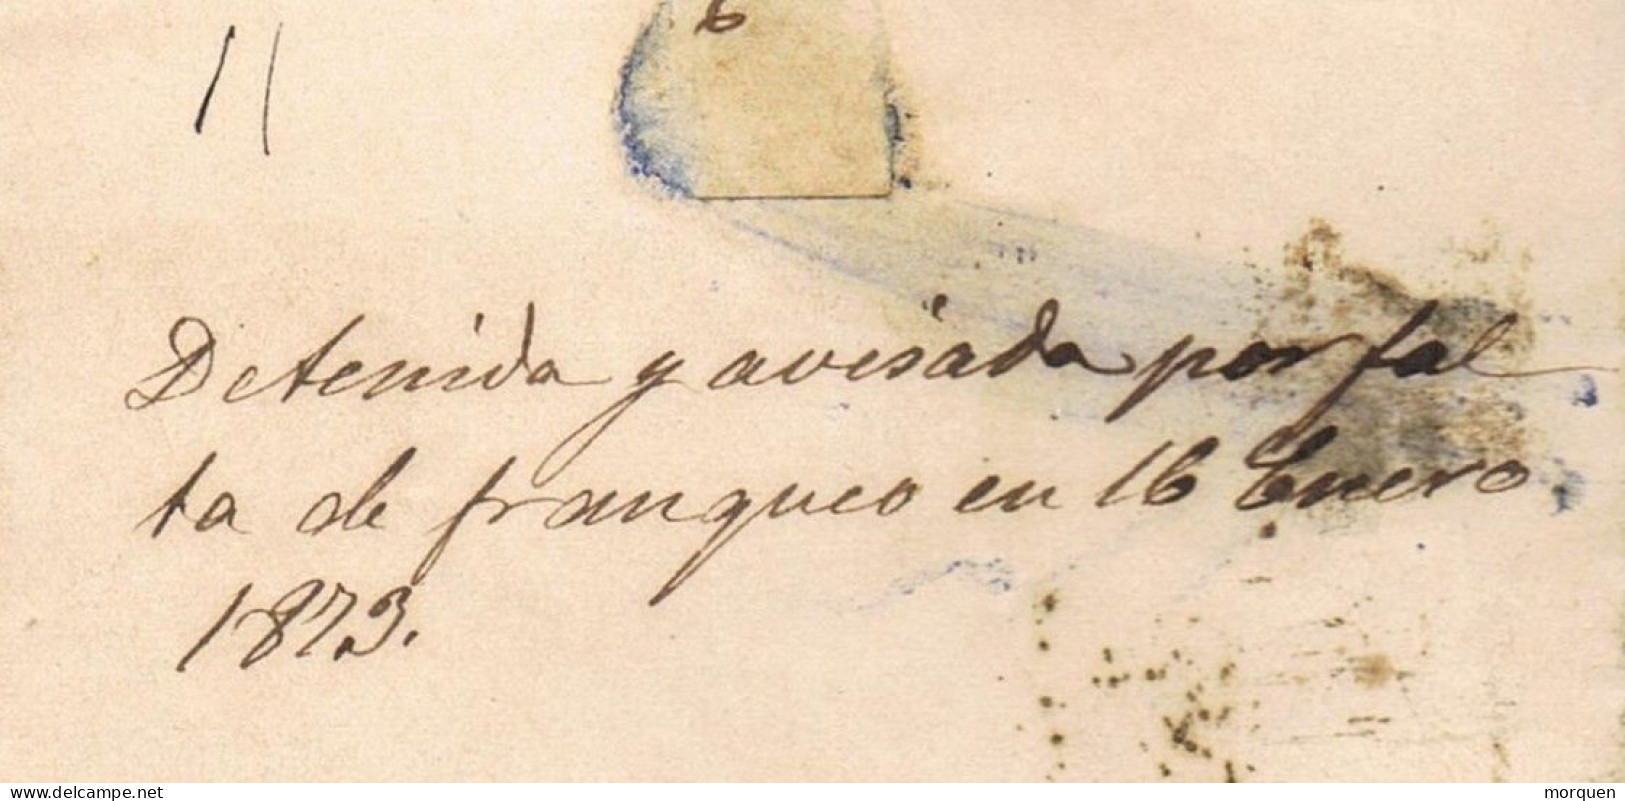 6
11
Detenida y avisada por fal
ta de franqueo en 16 Enero
1873.
www.delcampe.net
morquen